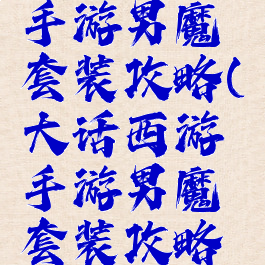 手游男魔
套装攻略(
大话西游
手游男魔
套装攻略